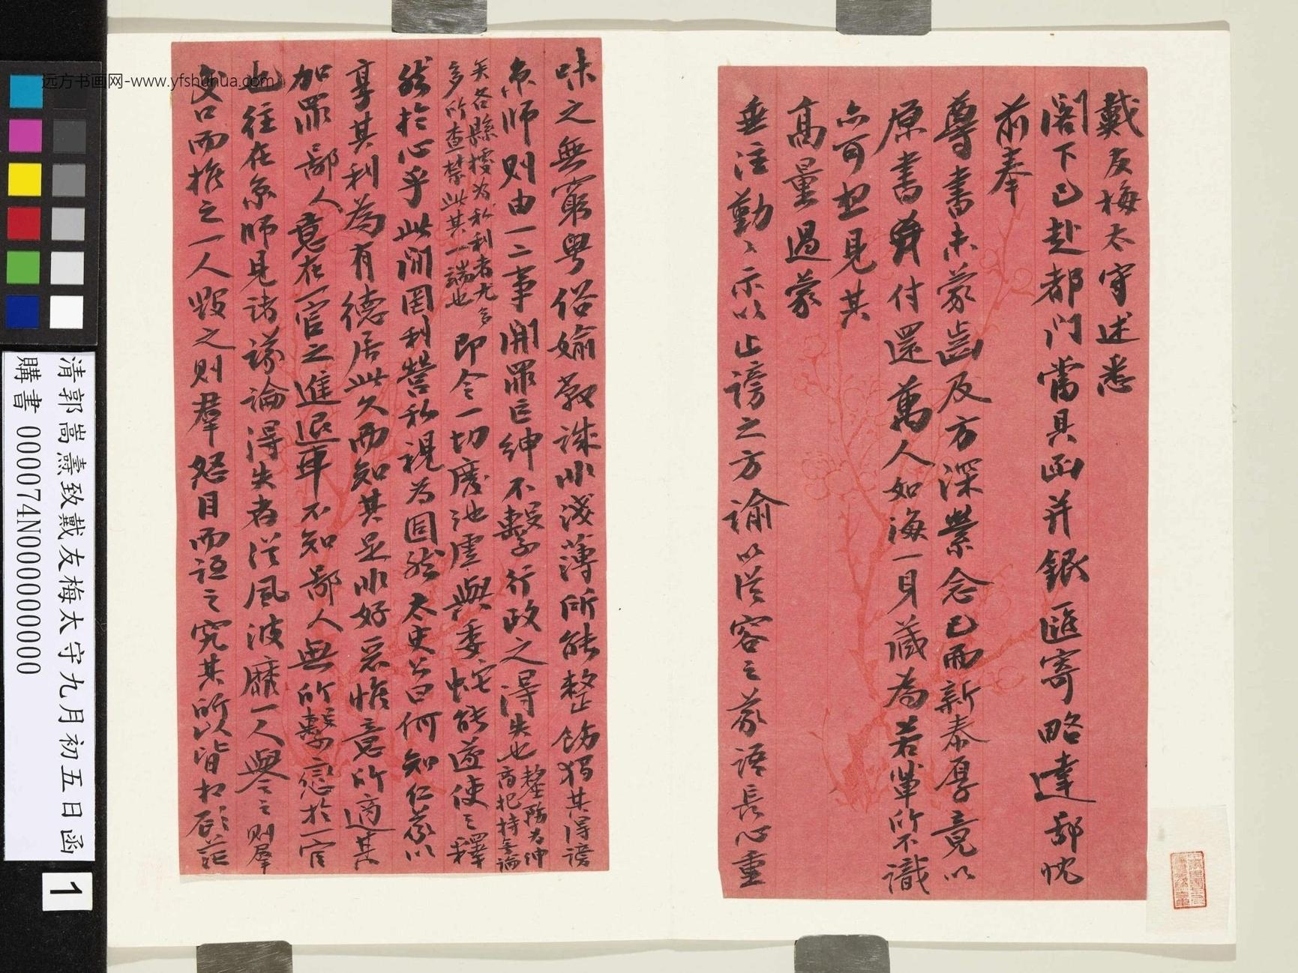 戴友梅太守述悉
閣下已赴都門當具函并銀匯寄略達鄙忱
前奉
尊書未蒙齒及方深縈念已而新泰厚竟以
原書付還萬人如海一身藏為若輩所不識
亦可想見其
高量過蒙
垂注勤〻示以止謗之方諭以從容之義語長心重
味之無窮粵俗媮敝誠非淺薄所能整飭獨其得謗
京師則由一二事開罪巨紳不繫行政之得失也
矣各縣擾為私利者尤多
多所查禁此其一端也
即令一切廢弛虛與委蛇能遂使之釋
然於心乎此間罔利營私視為固然太史公曰何知仁義以
享其利為有德居此久而知其是非好惡惟意所適其
加罪鄙人意在一官之進退耳不知鄙人無所繫戀於一官
也往在京師見諸議論得失者從風波靡一人譽之則羣
交口而推之一人毀之則羣怒目而詬之究其所以皆相顧茫
清郭嵩燾致戴友梅太守九月初五日函
購書 000074N000000000
1
远方书画网-www.yfshuhua.com